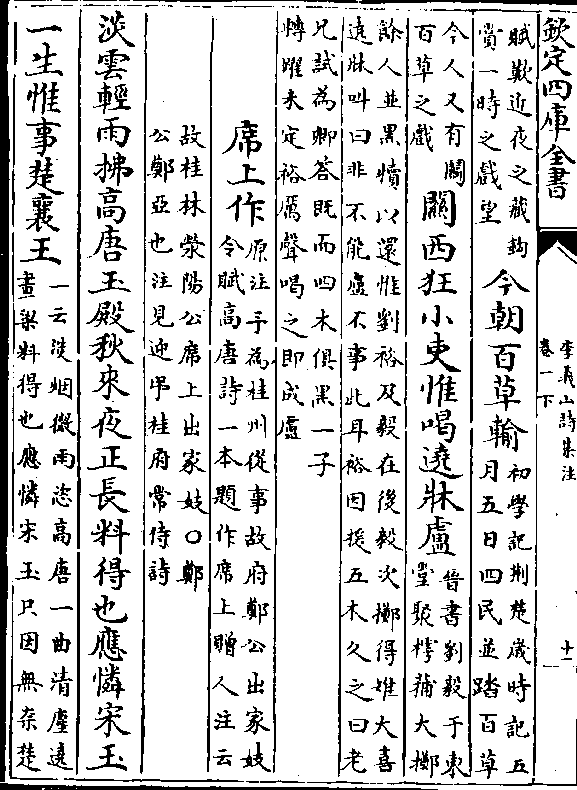 欽定四庫全書
李義山詩集注
卷一下
十一
賦歎近夜之藏鉤
賞一時之戲望
今朝百草輸
初學記荆楚歲時記五
月五日四民並踏百草
今人又有鬭
百草之戲
關西狂小吏惟喝遶牀盧
晉書劉毅于東
堂聚樗蒱大擲
餘人並黑犢以還惟劉裕及毅在後毅次擲得雉大喜
遶牀叫曰非不能盧不事此耳裕因挼五木久之曰老
兄試為卿答既而四木俱黑一子
轉躍未定裕厲聲喝之即成盧
席上作
原注予為桂州從事故府鄭公出家妓
令賦高唐詩一本題作席上贈人注云
故桂林滎陽公席上出家妓○鄭
公鄭亞也注見迎弔桂府常侍詩
淡雲輕雨拂高唐玉殿秋來夜正長料得也應憐宋玉
一生惟事楚襄王
一云淡烟微雨恣高唐一曲清塵遶
畫梁料得也應憐宋玉只因無奈楚